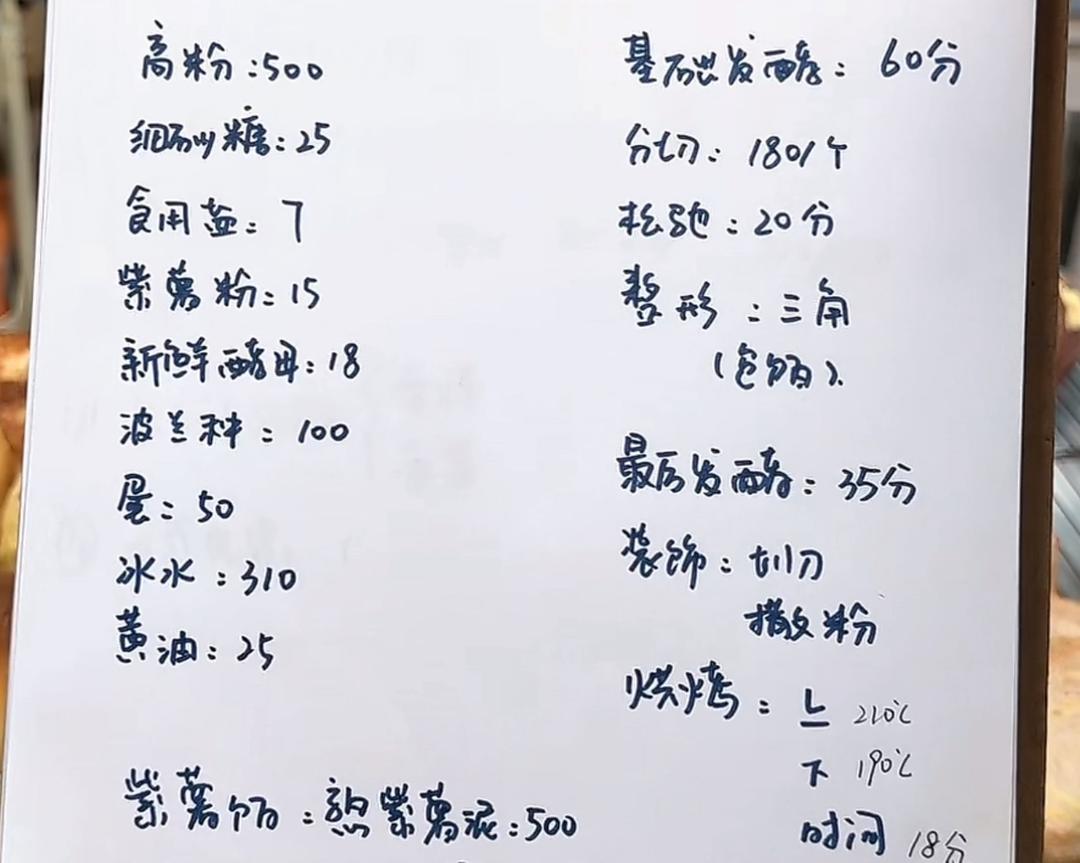 高粉:500
细砂糖:25
食用盐:7
紫薯粉:15
新鲜酵母:18
波兰种:100
蛋:50
冰水:310
黄油:25
紫薯馅:熟紫薯泥:500
基础发酵:60分
分切:180/个
松弛:20分
整形:三角
(包馅).
最后发酵:35分
装饰:划刀
撒粉
烘烤:上 210℃
下 190℃
时间 18分